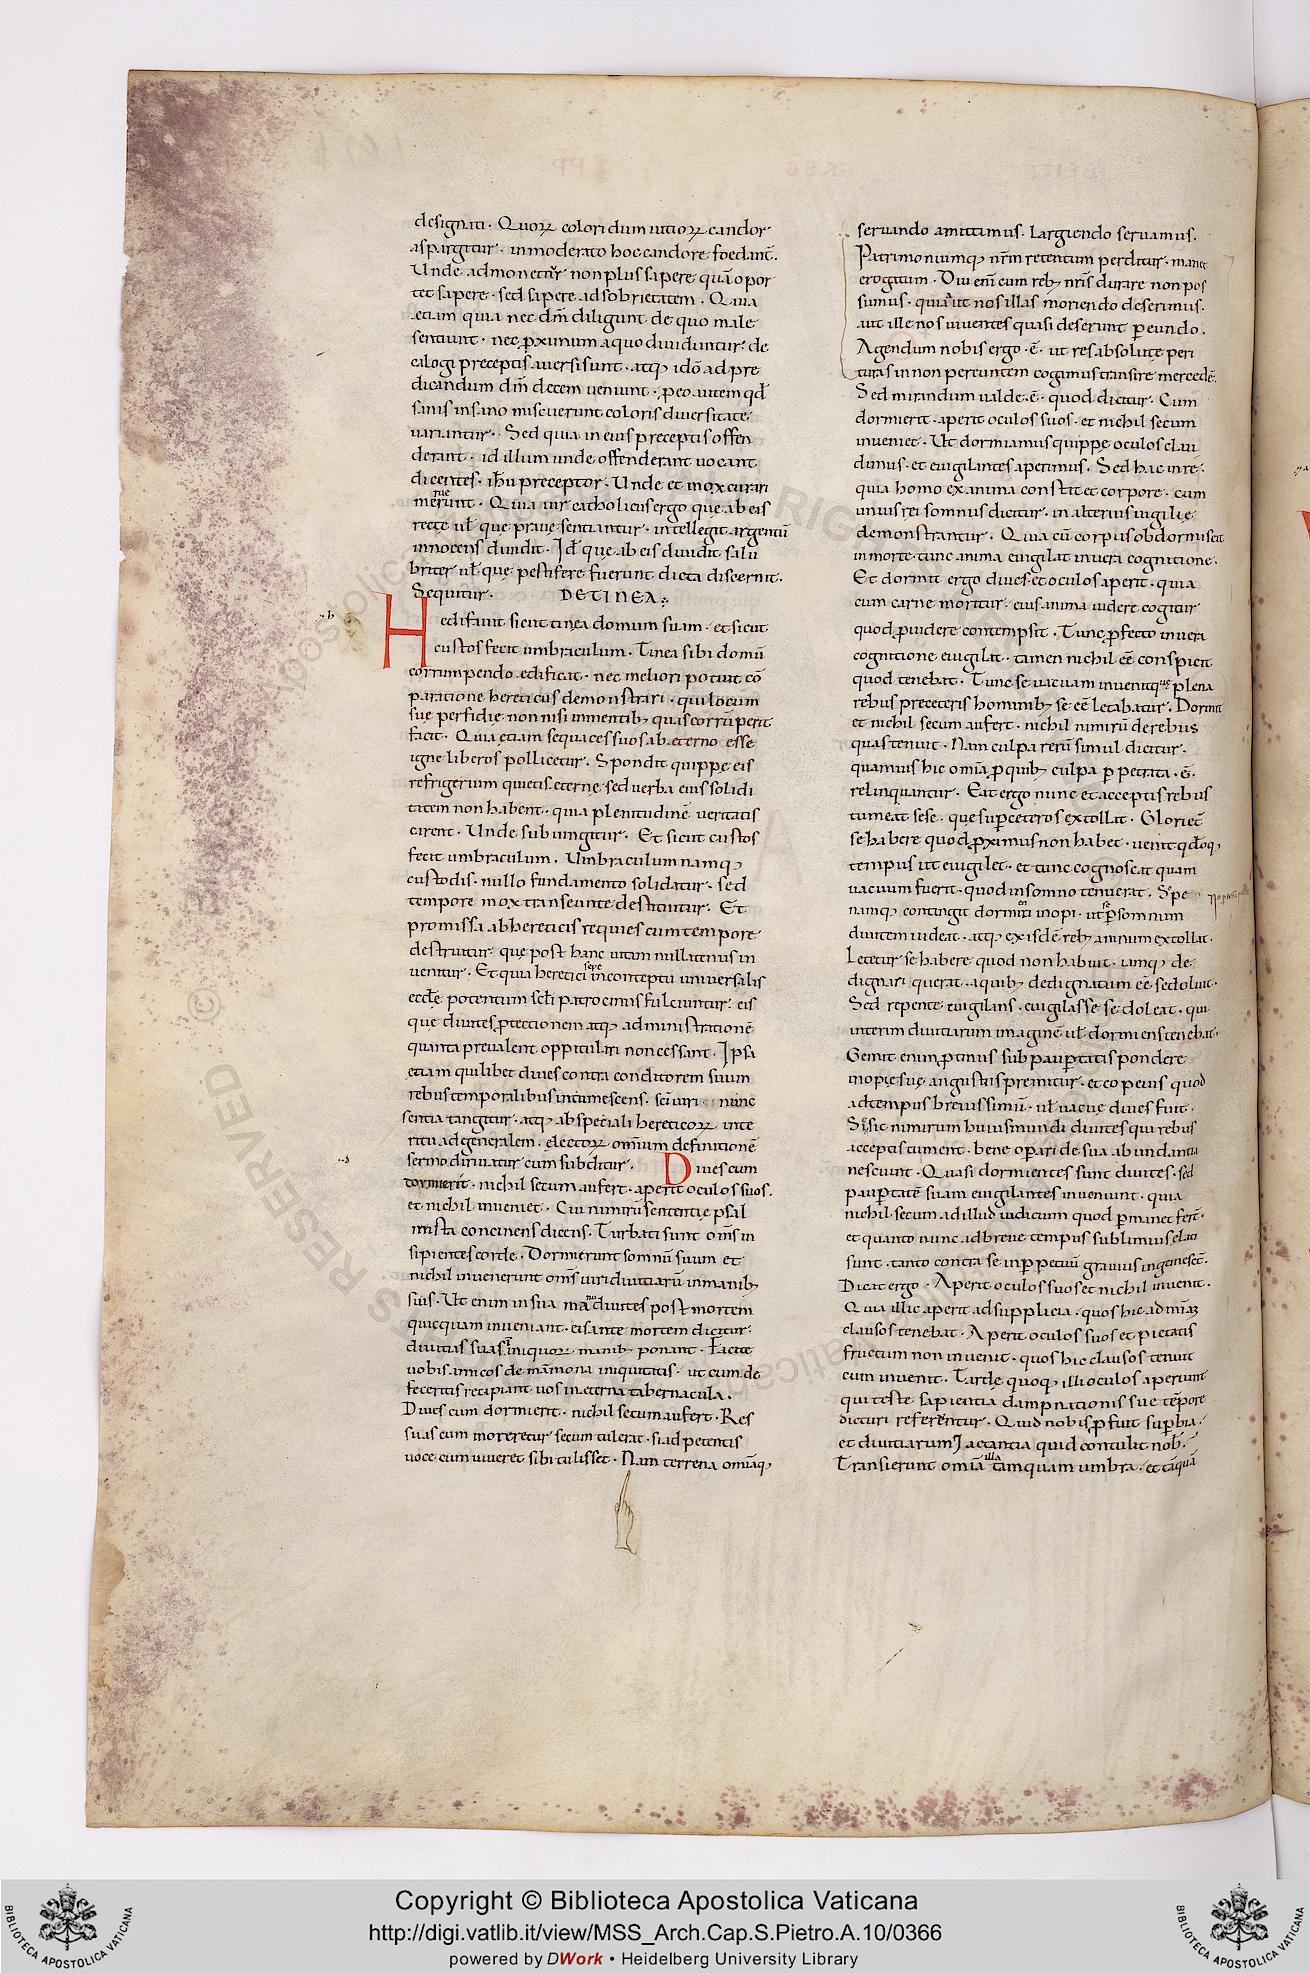 designati. Quorꝝ colori dum uitiorꝝ candor
aspargitur. inmoderato hoc candore foedant̄.
Unde admonetur non plus sapere quā opor
tet sapere. sed sapere ad sobrietatem. Quia
etiam quia nec dm̄ diligunt de quo male
sentiunt. nec ꝓximum a quo diuiduntur. de
calogi preceptis auersi sunt. atq; idō ad pre
dicandum dm̄ decem ueniunt. ꝓeo autem qđ
sanis insano miscuerunt coloris diuersitate
uariantur. Sed quia in eius preceptis offen
derant. id illum unde offenderant uocant
dicentes. ih̄u preceptor. Unde et mox curari
meruerunt. Quia uir catholicus ergo quę ab eis
recte ul̄ que praue sentiantur. intellegit argentū
innocens diuidit. Id ē que ab eis diuidit salu
briter ul̄ que pestifere fuerunt dicta discernit.
Sequitur. DE TINEA
Hedificauit sicut tinea domum suam. et sicut
custos fecit umbraculum. Tinea sibi domū
corrumpendo edificat. nec meliori potuit cō
paratione hereticus demonstrari. qui locum
suę perfidie non nisi in mentib; quas corrūperit
facit. Quia etiam sequaces suos ab ęterno esse
igne liberos pollicetur. Spondit quippe eis
refrigerium quietis ęternę sed uerba eius solidi
tatem non habent. quia plenitudinē ueritatis
carent. Unde subiungitur. Et sicut custos
fecit umbraculum. Umbraculum namq;
custodis. nullo fundamento solidatur. sed
tempore mox transeunte destituitur. Et
promissa ab hereticis requies cum tempore
destruitur. quę post hanc uitam nullatenus in
uenitur. Et quia heretici sepe in conteptu uniuersalis
eccl̄e potentum scl̄i patrociniis fulciuntur. eis
que diuites ꝓtectionem atq; administrationē
quanta preualent oppitulari non cessant. Ipsa
etiam quilibet diues contra conditorem suum
rebus temporalibus intumescens. sci uiri nunc
sentia tangitur. atq; ab speciali hereticorꝝ inte
ritu ad generalem. electorꝝ omīum definitionē
sermo diriuatur cum subditur. Diues cum
dormierit. nichil secum aufert. aperit oculos suos.
et nichil inueniet. Cui nimirū sententię psal
mista concinens dicens. Turbati sunt om̄s in
sipientes corde. Dormierunt somnū suum et
nichil inuenerunt om̄s uiri diuitiarū in manib;
suis. Ut enim in sua manu diuites post mortem
quicquam inueniant. eis ante mortem dicitur.
diuitias suas in quorꝝ manib; ponant. Facite
uobis amicos de māmona iniquitatis. ut cum de
feceritis recipiant uos in eterna tabernacula.
Diues cum dormierit. nichil secum aufert. Res
suas cum moreretur secum tulerat. si ad petentis
uoce cum uiueret sibi tulisset. Nam terrena omīaq;
seruando amittimus. largiendo seruamus.
Patrimoniumq; nr̄m retentum perditur. manet
erogatum. Diu eni cum reb; nr̄is durare non pos
sumus. quia aut nos illas moriendo deserimus.
aut ille nos uiuentes quasi deserunt ꝑeundo.
Agendum nobis ergo. ē. ut res absolute peri
turas in non pereuntem cogimus transire mercedē.
Sed mirandum ualde. ē. quod dicitur. Cum
dormierit. aperit oculos suos. et nichil secum
inueniet. Ut dormiamus quippe oculos clau
dimus. et euigilantes aperimus. Sed hac in re.
quia homo ex anima constat et corpore. cum
unius rei somnus dicitur. in alterius uigilię
demonstrantur. Quia cū corpus obdormiscit
in morte. tunc anima euigilat in uera cognitione.
Et dormit ergo diues et oculos aperit. quia
cum carne moritur. eius anima uidere cogitur
quod ꝓuidere contempsit. Tunc ꝓfecto in uera
cognitione euigilat. tamen nichil eē conspicit
quod tenebat. Tunc se uacuam inuenit quę plena
rebus pre ceteris hominib; se eē letabatur. Dormit
et nichil secum aufert. nichil nimirū de rebus
quas tenuit. Nam culpa rerū simul dicitur.
quamuis hic omīa ꝓ quib; culpa ꝑpetrata. ē.
relinquantur. Eat ergo nunc et acceptis rebus
tumeat sese. que suꝑ ceteros extollat. Glorięt̄
se habere quod ꝓximus non habet. uenit qđoq;
tempus ut euigilet. et tunc cognoscat quam
uacuum fuerit. quod in somno tenuerat. Sepe
namq; contingit dormienti inopi. ut per somnum
diuitem uideat. atq; ex isdē reb; animum extollat.
Letetur se habere quod non habuit. iamq; de
dignari querat. a quib; dedignatum eē se doluit.
Sed repente euigilans. euigilasse se doleat. qui
interim diuitiarum imaginē ul̄ dormiens tenebat.
Gemit enim ꝓtinus sub pauꝑtatis pondere
inopię suę angustiis premitur. et eo peius quod
ad tempus breuissimū. ul̄ uacue diues fuit.
Sic sic nimirum huius mundi diuites qui rebus
acceptis tument. bene oꝑari de sua abundantia
nesciunt. Quasi dormientes sunt diuites. sed
pauꝑtatē suam euigilantes inueniunt. quia
nichil secum ad illud iudicium quod ꝑmanet fert̄.
et quanto nunc ad breue tempus sublimius elati
sunt. tanto contra se in ꝑpetuū grauius ingemesct̄.
Dicat ergo. Aperit oculos suos et nichil inuenit.
Quia illic aperit ad supplicia. quos hic ad mīaꝫ
clausos tenebat. Aperit oculos suos et pietatis
fructum non inuenit. quos hic clausos tenuit
cum inuenit. Tarde quoq; illi oculos aperiunt
qui teste sapientia dampnationis sue tēpore
dicturi referentur. Quid nobis ꝓfuit suꝑbia.
et diuitiarum Iactantia quid contulit nob̄.
Transierunt omīa illa tamquam umbra. et tāquā
Copyright © Biblioteca Apostolica Vaticana
http://digi.vatlib.it/view/MSS_Arch.Cap.S.Pietro.A.10/0366
powered by DWork • Heidelberg University Library
BIBLIOTECA APOSTOLICA VATICANA
BIBLIOTECA APOSTOLICA VATICANA